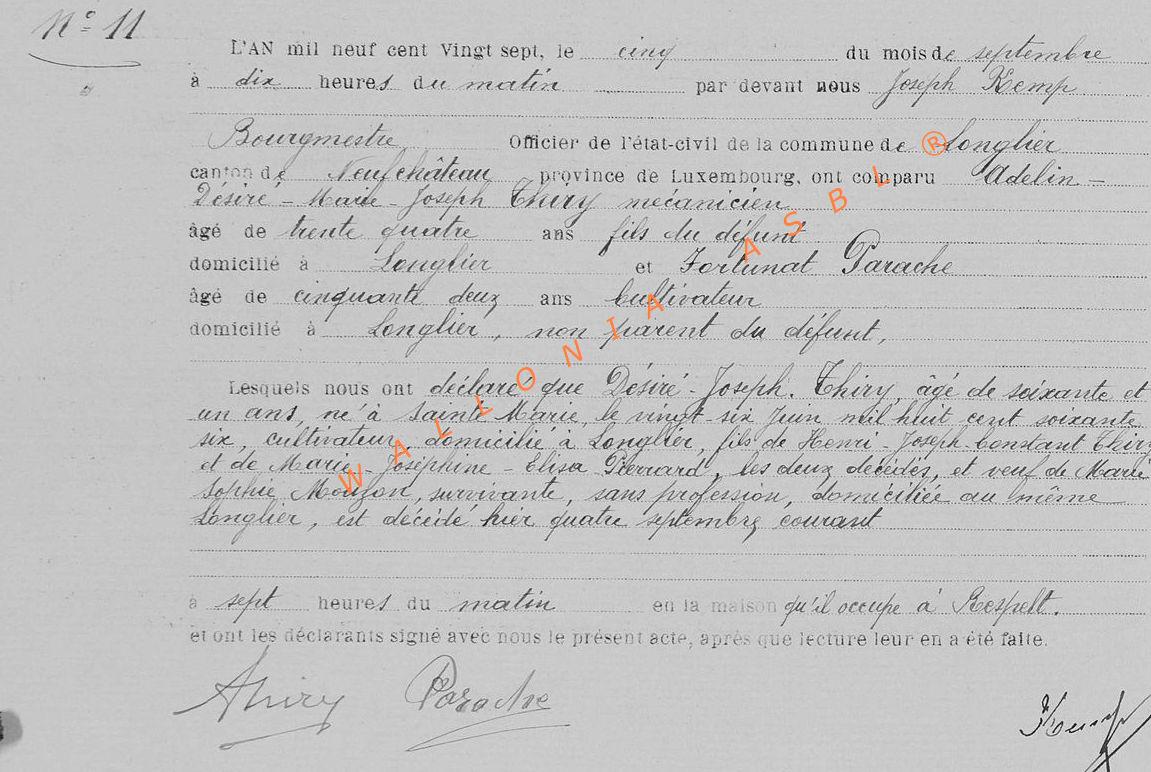 N° 11
L'AN mil neuf cent Vingt sept, le cinq du mois de septembre
à dix heures du matin par devant nous Joseph Kemp
Bourgmestre, Officier de l'état-civil de la commune de Longlier
canton de Neufchâteau province de Luxembourg, ont comparu Adelin-
Désiré-Marie-Joseph Thiry mécanicien
âgé de trente quatre ans fils du défunt
domicilié à Longlier et Fortunat Parache
âgé de cinquante deux ans Cultivateur
domicilié à Longlier, non parent du défunt,
Lesquels nous ont déclaré que Désiré-Joseph. Thiry, âgé de soixante et
un ans, né à Sainte Marie, le vingt-six Juin mil huit cent soixante
six, cultivateur, domicilié à Longlier, fils de Henri-Joseph-Constant Thiry
et de Marie-Joséphine-Elisa Pierrard, les deux décédés, et veuf de Marie
Sophie survivante, sans profession, domiciliée au même
Longlier, est décédé hier quatre septembre courant
à sept heures du matin en la maison qu'il occupe à Respelt.
et ont les déclarants signé avec nous le présent acte, après que lecture leur en a été faite.
Thiry Parache
Kemp
WALLONIA ASBL ®